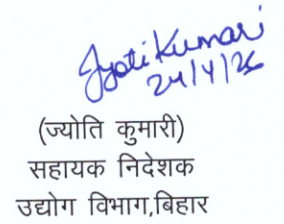 Jyoti Kumari
24/4/26
(ज्योति कुमारी)
सहायक निदेशक
उद्योग विभाग,बिहार